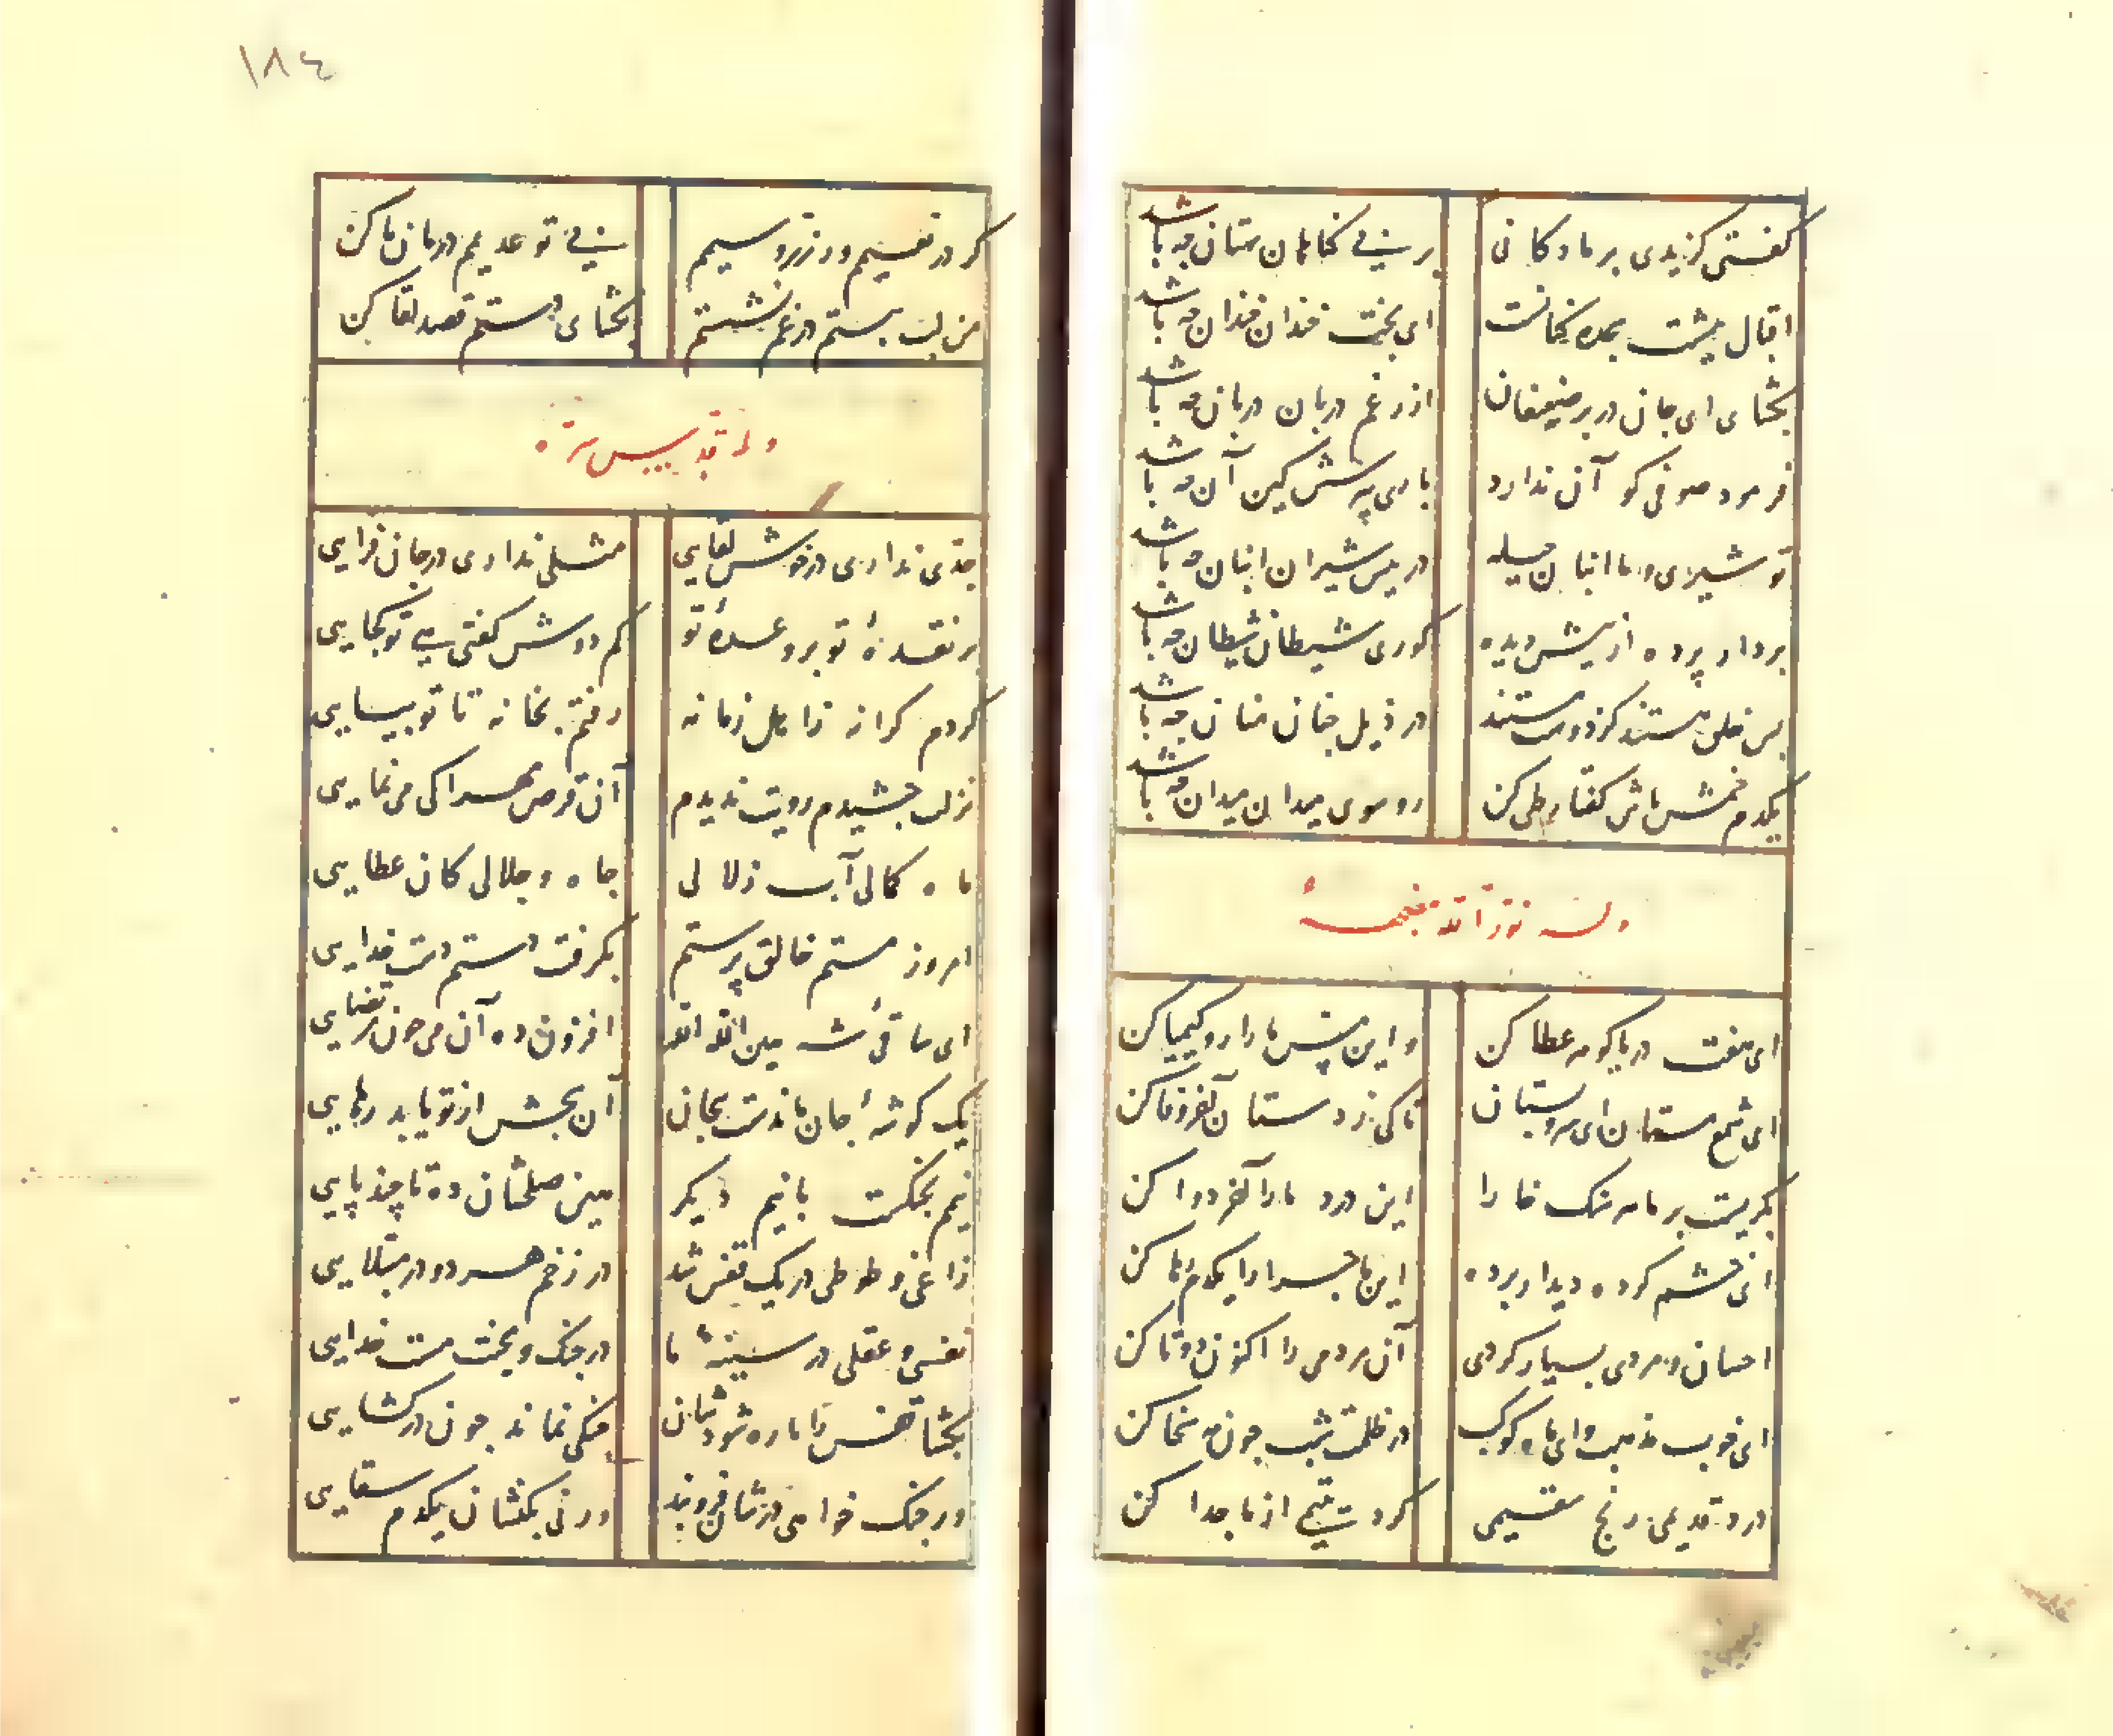 گفتی گزیدی بر ما دکانی
بر بی گناهان بهتان چه باشد
اقبال پیشت سجده کنانست
ای بخت خندان خندان چه باشد
بخشای ای جان در بر ضعیفان
از رغم دربان دربان چه باشد
فرمود صوفی کو آن ندارد
باری بپرسش کین آن چه باشد
تو شیری و ما انبان حیله
در پیش شیران انبان چه باشد
بردار پرده از پیش دیده
کوری شیطان شیطان چه باشد
بس خلق هستند کز دوست مستند
در ذیل جانان چه باشد
یکدم خمش باش گفتار طی کن
رو سوی میدان میدان چه باشد
وله نور الله مضجعه
ای هفت دریا گوهر عطا کن
و این مس ما را رو کیمیا کن
ای شمع مستان ای سرو بستان
تا کی ز دستان آخر وفا کن
بگریست بر ما هر سنگ خارا
این درد ما را آخر دوا کن
ای خشم کرده دیدار برده
این ماجرا را یکدم رها کن
احسان و مردی بسیار کردی
آن مردمی را اکنون دوتا کن
ای خوب مذهب وای ماه کوکب
در ظلمت شب چون مه سخا کن
درد قدیمی رنج سقیمی
گرد یتیمی از ما جدا کن
١٨٤
گر در نعیمیم ور زر و سیمیم
بی تو عدیمیم درمان ما کن
من لب ببستم در غم نشستم
بگشای دستم قصد لقا کن
وله قدس سره
حدی نداری در خوش لقایی
مثلی نداری در جان فزایی
بر وعدهٔ تو بر نقدهٔ تو
کم دوش گفتی هی تو کجایی
کردم کرانه ز اهل زمانه
رفتم بخانه تا تو بیایی
نزلت چشیدم رویت ندیدم
آن قرص مه را کی می نمایی
ماه کمالی آب زلالی
جاه و جلالی کان عطایی
امروز مستم خالق پرستم
بگرفت دستم دست خدایی
ای ساقی شه هین الله الله
افزون ده آن می چون مرتضایی
یک گوشهٔ جان ماندست بجان
آن بخش از تو یابد رهایی
نیم بجنگست با نیم دیگر
هین صلحشان ده تا چند پایی
زاغی و طوطی در یک قفس شد
در زخم هر دو در مبتلایی
نفسی و عقلی در سینهٔ ما
در جنگ و بخت مست خدایی
بگشا قفس را تا ره شودشان
جنگی نماند چون در گشایی
ور جنگ خواهی درشان فروبند
ور نی بکششان یکدم سقایی